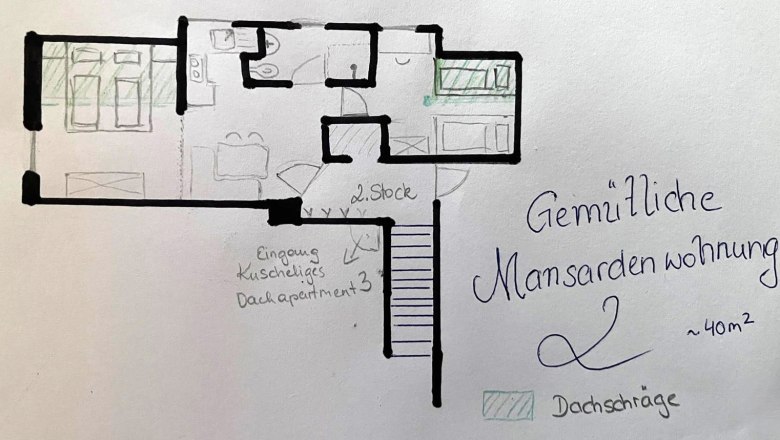 2.Stock
Eingang
Kuscheliges
Dachapartment 3
Gemütliche
Mansardenwohnung
2
~40m²
Dachschräge